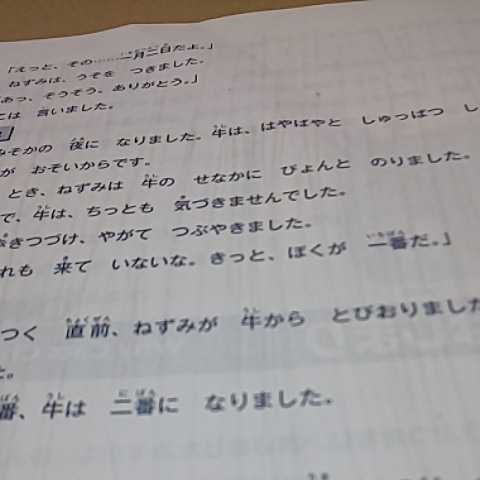 「えっと、その……一月二日だよ。」
ねずみは、うそを つきました。
「あっ、そうそう、ありがとう。」
には 言いました。
みそかの 夜に なりました。牛は、はやばやと しゅっぱつ し
が おそいからです。
とき、ねずみは 牛の せなかに ぴょんと のりました。
で、牛は、ちっとも 気づきませんでした。
きつづけ、やがて つぶやきました。
れも 来て いないな。きっと、ぼくが 一番だ。」
つく 直前、ねずみが 牛から とびおりました
た。
番、牛は 二番に なりました。